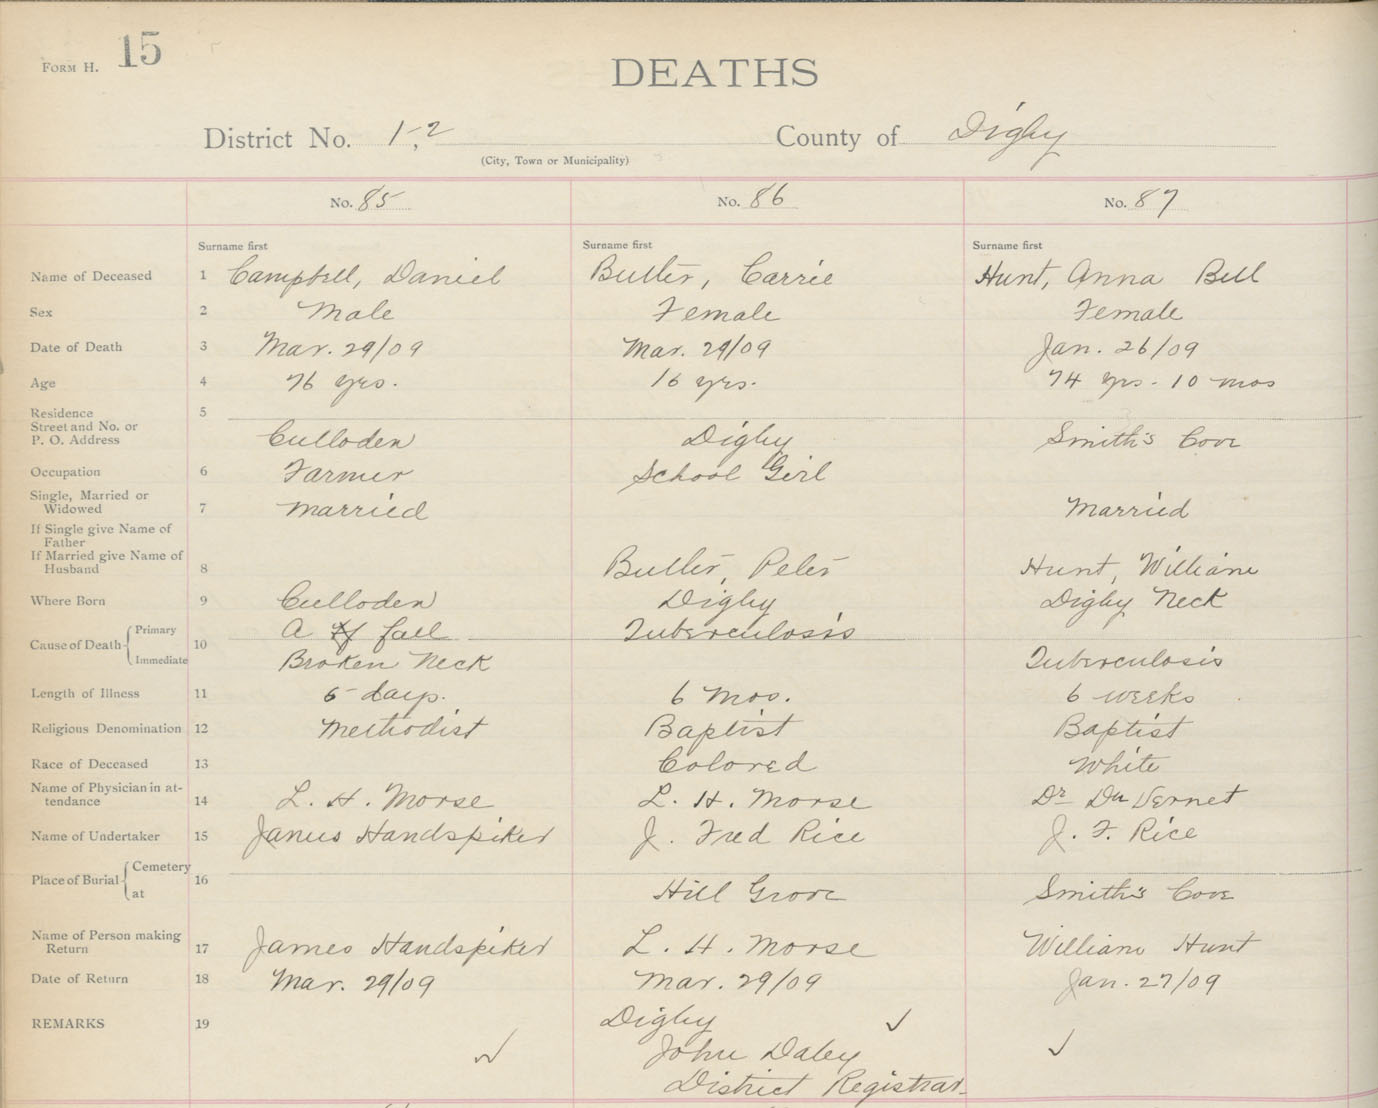 FORM H. 15
DEATHS
District No. 1, 2 County of Digby
(City, Town or Municipality)
No. 85 No. 86 No. 87
Surname first Surname first Surname first
Name of Deceased 1 Campbell, Daniel Butler, Carrie Hunt, Anna Bell
Sex 2 Male Female Female
Date of Death 3 Mar. 29/09 Mar. 29/09 Jan. 26/09
Age 4 76 yrs. 16 yrs. 74 yrs. 10 mos
Residence 5
Street and No. or
P. O. Address Culloden Digby Smith's Cove
Occupation 6 Farmer School Girl
Single, Married or
Widowed 7 Married Married
If Single give Name of
Father
If Married give Name of
Husband 8 Butler, Peter Hunt, William
Where Born 9 Culloden Digby Digby Neck
Cause of Death Primary 10 A fall Tuberculosis
Immediate Broken Neck Tuberculosis
Length of Illness 11 5 days. 6 mos. 6 weeks
Religious Denomination 12 Methodist Baptist Baptist
Race of Deceased 13 Colored White
Name of Physician in at-
tendance 14 L. H. Morse L. H. Morse Dr Du Vernet
Name of Undertaker 15 James Handspiker J. Fred Rice J. F. Rice
Place of Burial Cemetery 16
at Hill Grove Smith's Cove
Name of Person making
Return 17 James Handspiker L. H. Morse William Hunt
Date of Return 18 Mar. 29/09 Mar. 29/09 Jan. 27/09
REMARKS 19 Digby ✓
✓ John Daley ✓
District Registrar